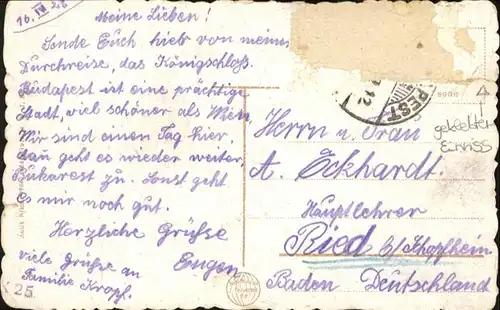 16. IV
Meine Lieben!
Sende Euch hier von meiner
Durchreise, das Königschloß.
Budapest ist eine prächtige
Stadt, viel schöner als Wien,
Wir sind einen Tag hier
dan geht es wieder weiter,
Bukarest zu. Sonst geht
es mir noch gut.
Herzliche Grüsse
Eugen
viele Grüsse an
Familie Kropf.
25
PEST
geklebter
Einriss
Herrn u. Frau
A. Eckhardt.
Hauptlehrer
Ried b/Schopfheim
Baden Deutschland